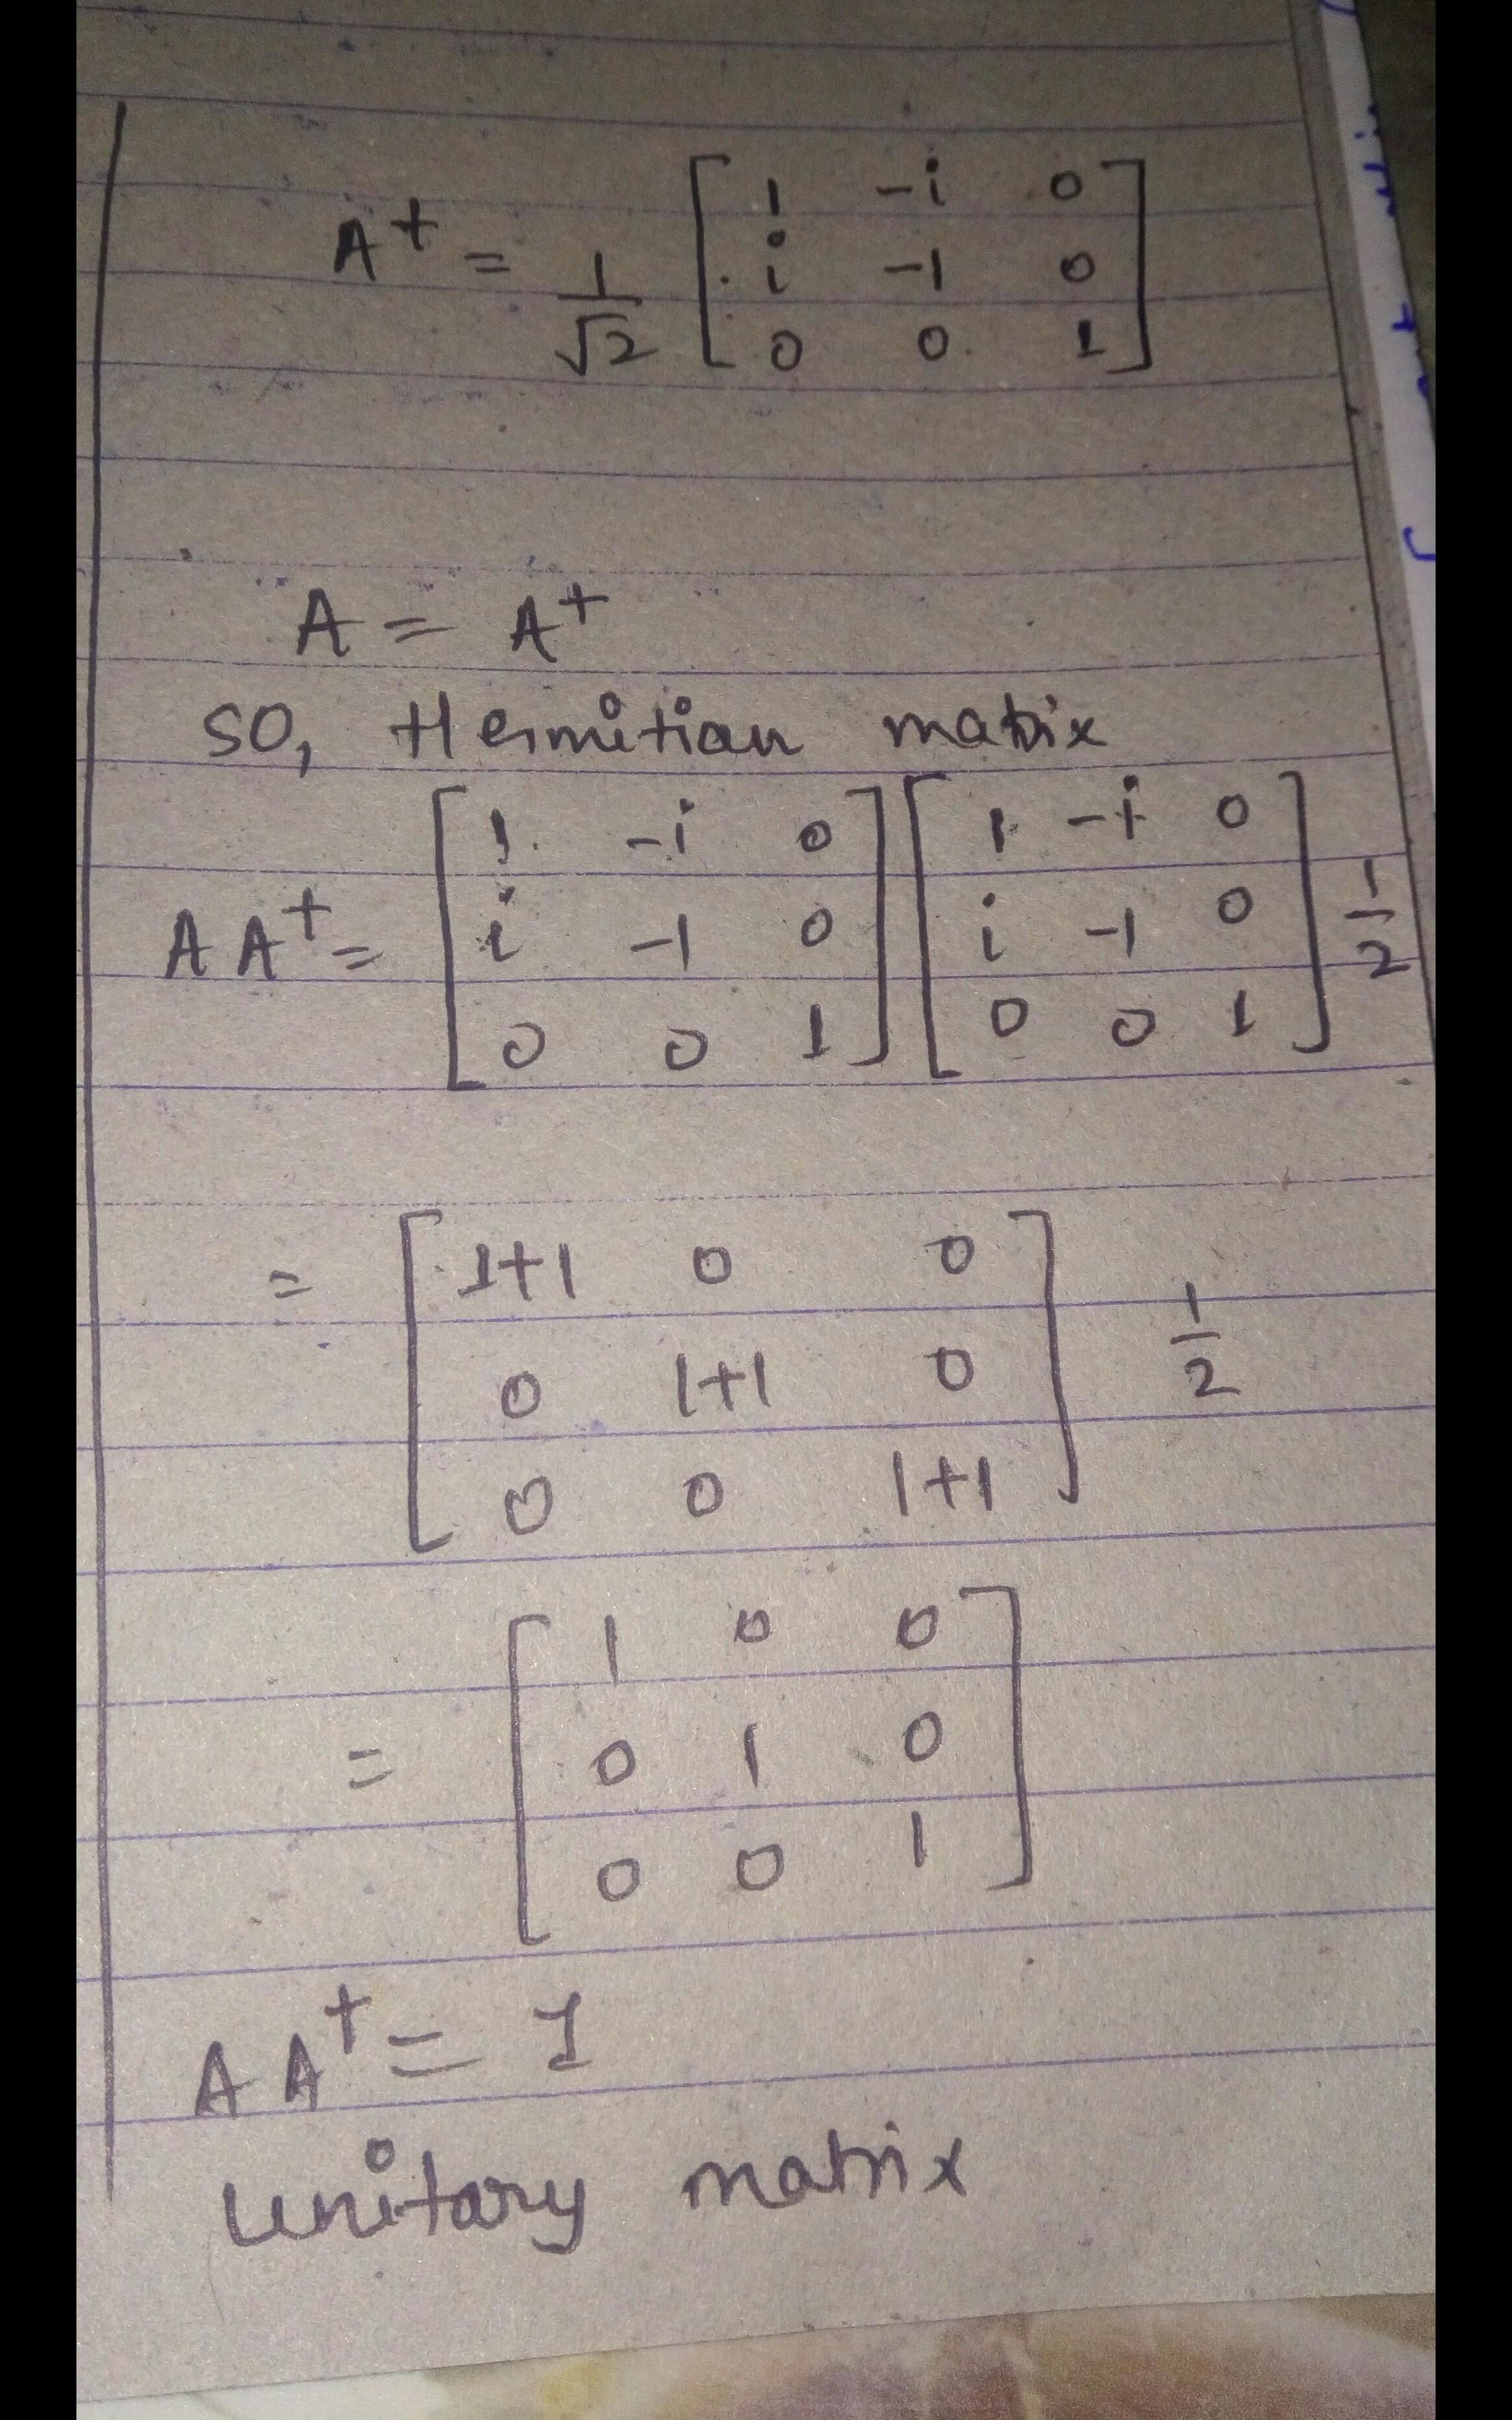 A⁺ = 1/√2 [ 1 -i 0
i -1 0
0 0 1 ]
A = A⁺
SO, Hermitian matrix
AA⁺ = [ 1 -i 0 ] [ 1 -i 0 ] 1/2
[ i -1 0 ] [ i -1 0 ]
[ 0 0 1 ] [ 0 0 1 ]
= [ 1+1 0 0
0 1+1 0 ] 1/2
0 0 1+1 ]
= [ 1 0 0
0 1 0
0 0 1 ]
AA⁺ = I
unitary matrix